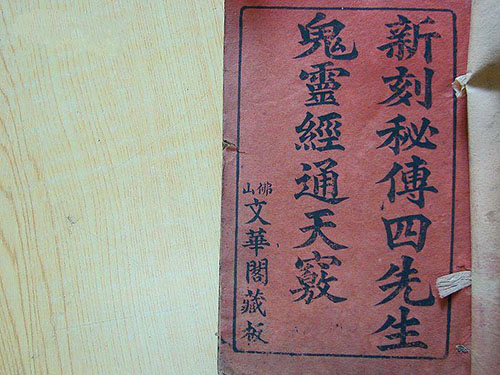 新刻秘傳四先生
鬼靈經通天竅
佛山
文華閣藏板